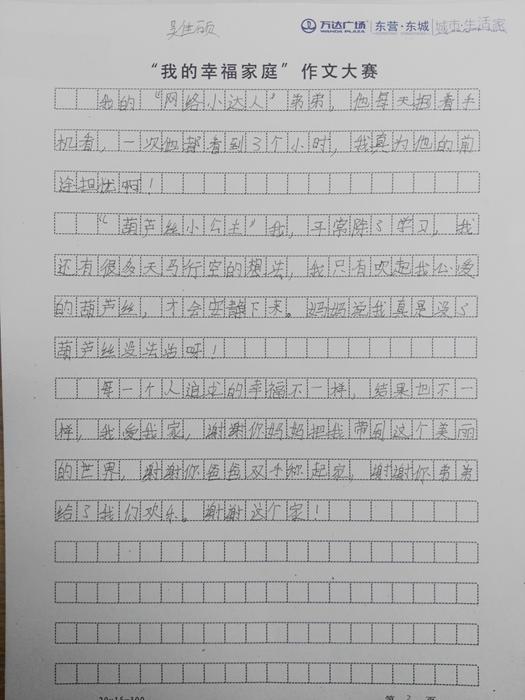 吴佳硕
万达广场 WANDA PLAZA 东营·东城 城市·生活家
“我的幸福家庭”作文大赛
我的“网络小达人”弟弟，他每天抱着手
机看，一次他都看到3个小时，我真为他的前
途担忧啊！
“葫芦丝小公主”我，平常除了学习，我
还有很多天马行空的想法，我只有吹起我心爱
的葫芦丝，才会安静下来。妈妈说我真是没了
葫芦丝没法活呀！
每一个人追求的幸福不一样，结果也不一
样，我爱我家，谢谢你妈妈把我带到这个美丽
的世界，谢谢你爸爸双手称起家，谢谢你弟弟
给了我们欢乐。谢谢这个家！
20×15=300 第 2 页